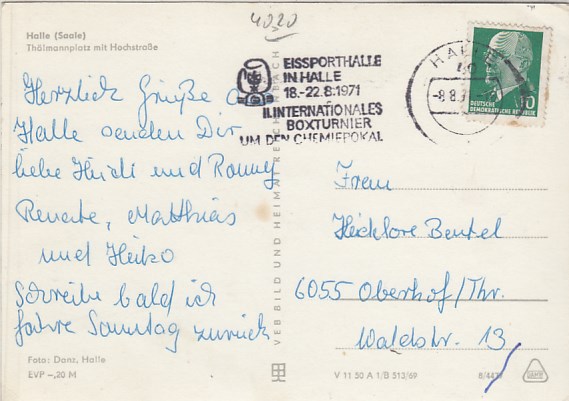 4020
Halle (Saale)
Thälmannplatz mit Hochstraße
EISSPORTHALLE
IN HALLE
18.-22.8.1971
II. INTERNATIONALES
BOXTURNIER
UM DEN CHEMIEPOKAL
HALLE
-8.8.7
10
DEUTSCHE
DEMOKRATISCHE REPUBLIK
Herzlich Grüße a
Halle senden Dir
liebe Heidi und Ronny
Renate, Matthias
und Heiko
Schreibe bald ich
fahre Sonntag zurück
VEB BILD UND HEIMAT REICHENBACH
Frau
Heidelore Beutel
6055 Oberhof/Thr.
Waldstr. 13
Foto: Danz, Halle
EVP -,20 M
V 11 50 A 1/B 513/69